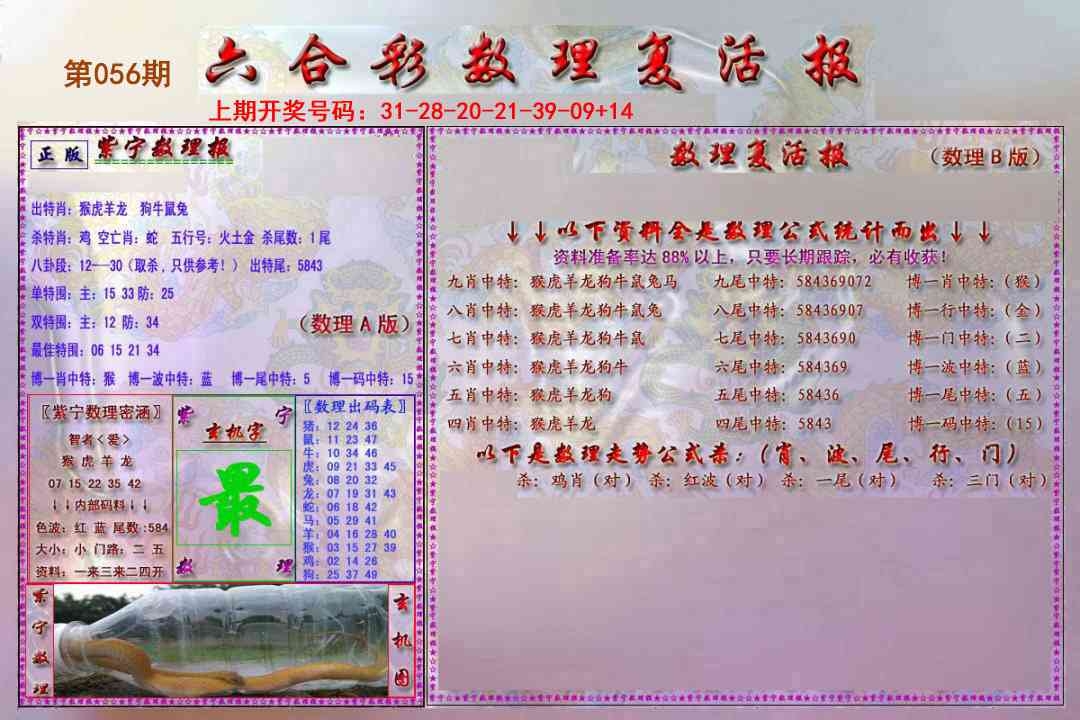 第056期
六合彩数理复活报
上期开奖号码：31-28-20-21-39-09+14
正版
紫宁数理报
出特肖：猴虎羊龙 狗牛鼠兔
杀特肖：鸡 空亡肖：蛇 五行号：火土金 杀尾数：1尾
八卦段：12---30（取杀，只供参考！） 出特尾：5843
单特围：主：15 33 防：25
双特围：主：12 防：34
（数理A版）
最佳特围：06 15 21 34
博一肖中特：猴 博一波中特：蓝 博一尾中特：5 博一码中特：15
〖紫宁数理密涵〗
智者＜爱＞
猴 虎 羊 龙
07 15 22 35 42
↓↓内部码料↓↓
色波：红 蓝 尾数:584
大小：小 门路：二 五
资料：一来三来二四开
紫宁
玄机字
最
数理
〖数理出码表〗
猪：12 24 36
鼠：11 23 47
牛：10 34 46
虎：09 21 33 45
兔：08 20 32
龙：07 19 31 43
蛇：06 18 42
马：05 29 41
羊：04 16 28 40
猴：03 15 27 39
鸡：02 14 26
狗：25 37 49
紫宁数理
玄机图
数理复活报
（数理B版）
↓↓以下资料全是数理公式统计而出↓↓
资料准备率达88%以上，只要长期跟踪，必有收获！
九肖中特：猴虎羊龙狗牛鼠兔马 九尾中特：584369072 博一肖中特：（猴）
八肖中特：猴虎羊龙狗牛鼠兔 八尾中特：58436907 博一行中特：（金）
七肖中特：猴虎羊龙狗牛鼠 七尾中特：5843690 博一门中特：（二）
六肖中特：猴虎羊龙狗牛 六尾中特：584369 博一波中特：（蓝）
五肖中特：猴虎羊龙狗 五尾中特：58436 博一尾中特：（五）
四肖中特：猴虎羊龙 四尾中特：5843 博一码中特：（15）
以下是数理走势公式杀：（肖、波、尾、行、门）
杀：鸡肖（对） 杀：红波（对） 杀：一尾（对） 杀：三门（对）